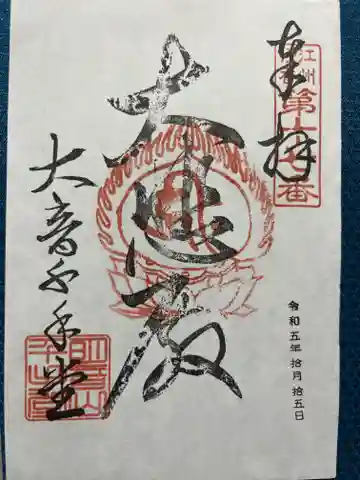 奉拝
江州
大悲殿
大音千手堂
令和五年拾月拾五日